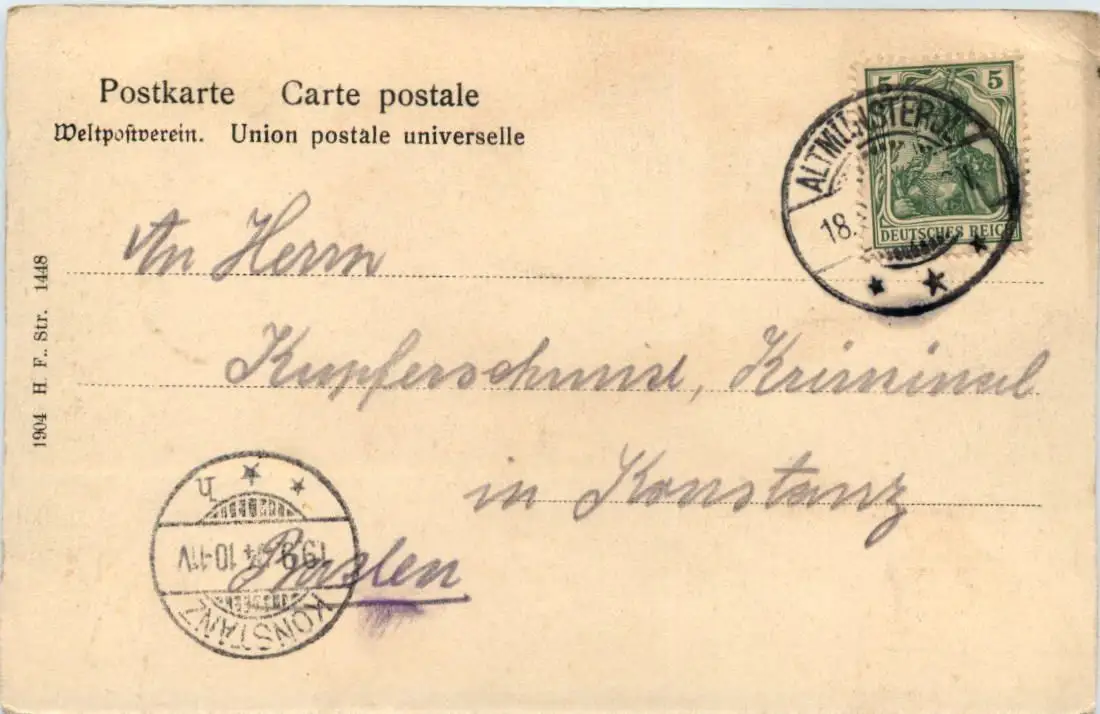 Postkarte Carte postale
Weltpostverein. Union postale universelle
5 5
DEUTSCHES REICH
ALTMÜNSTEROL
18.
An Herrn
Kupferschmid, Kriminal
in Konstanz
Baden
1904 H. F. Str. 1448
KONSTANZ
19.9.04.10-11V
h